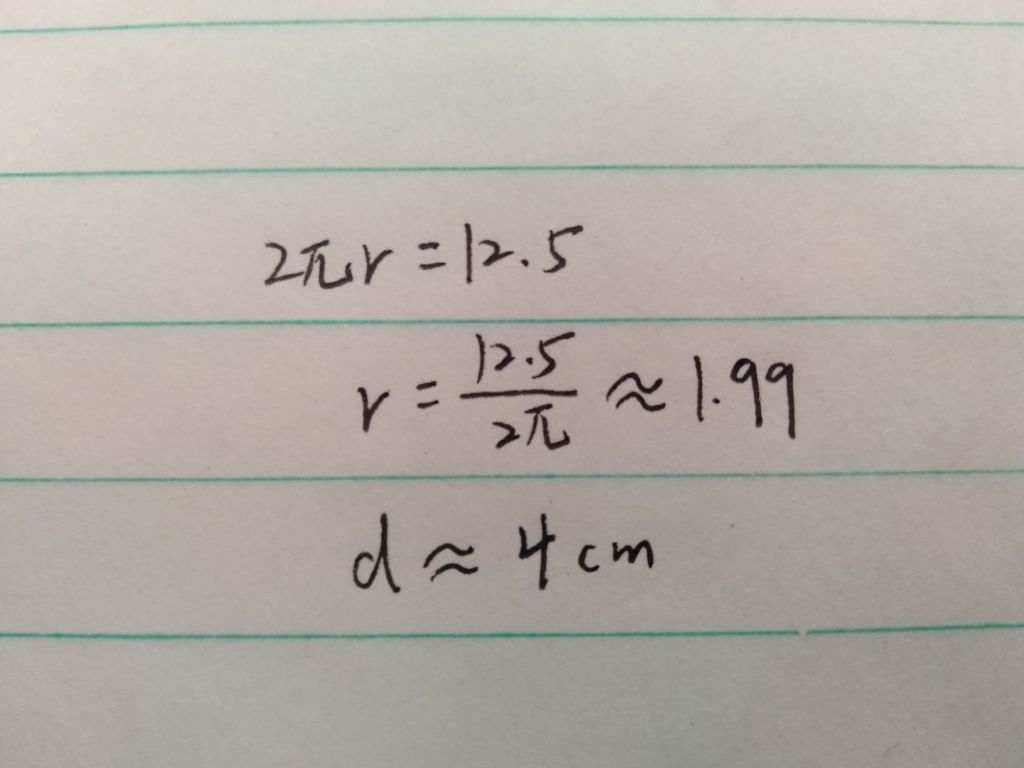 2πr = 12.5
r = 12.5/2π ≈ 1.99
d ≈ 4 cm